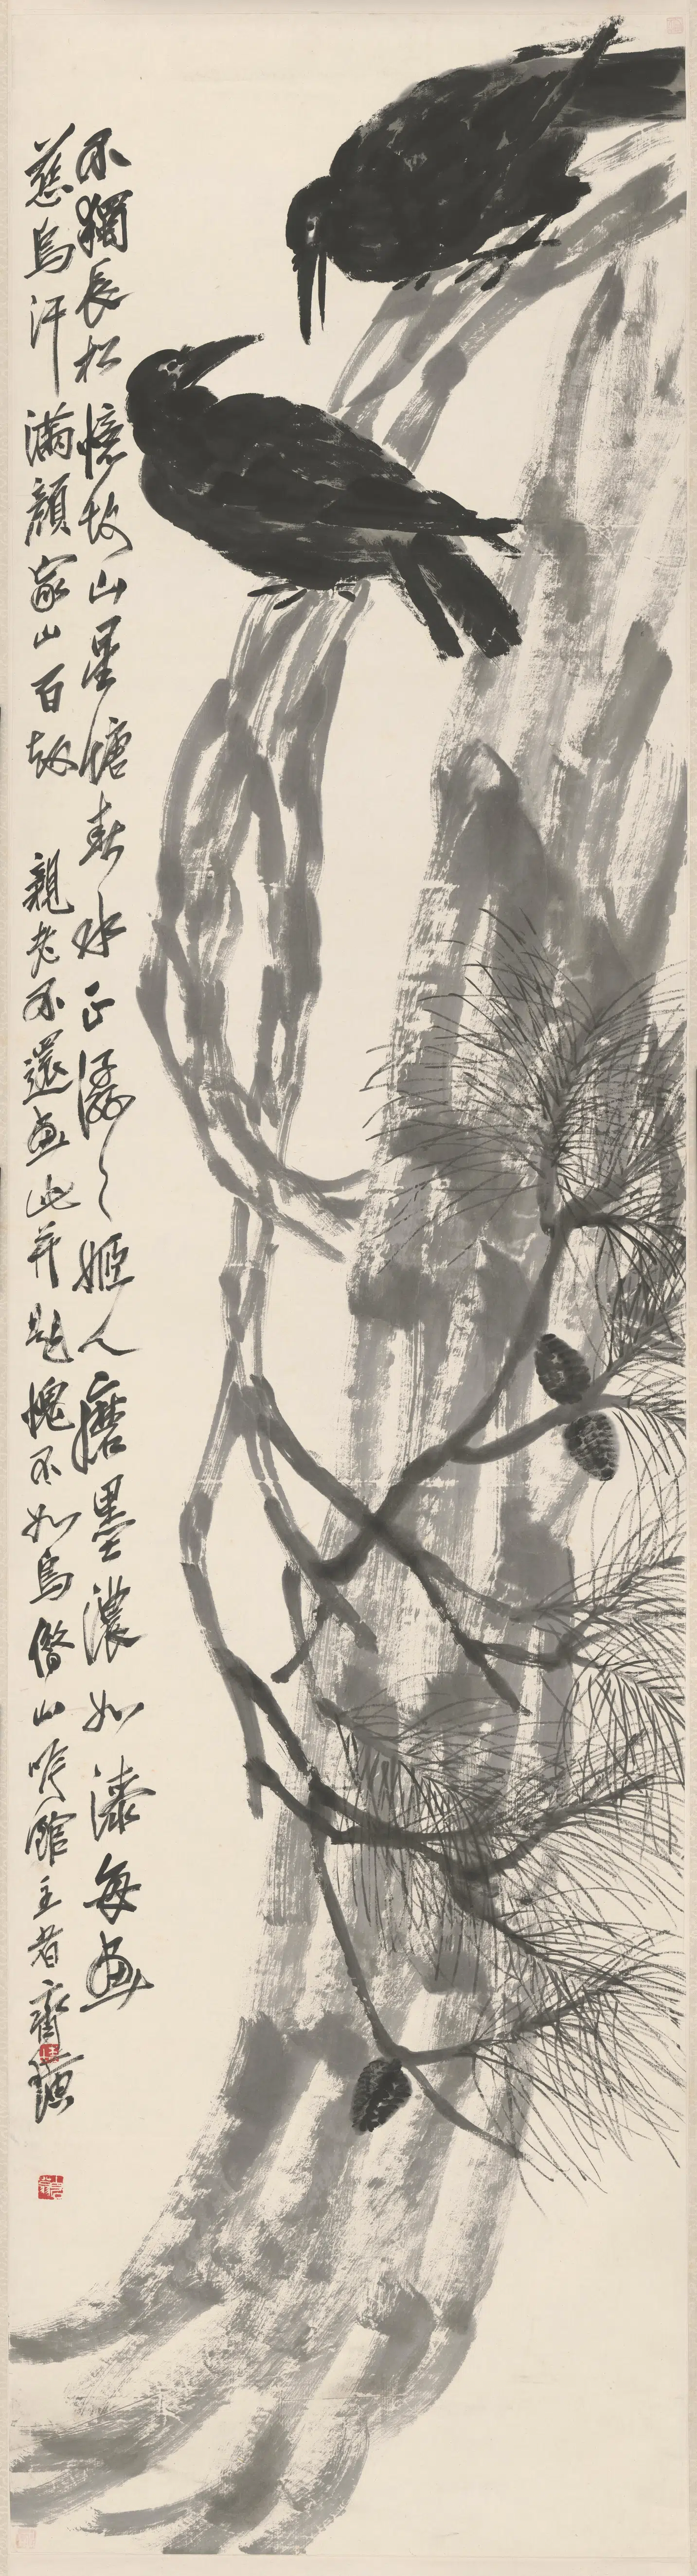 不獨長松憶故山星塘春水正潺〻姬人磨墨濃如漆每画
慈烏汗滿顏家山百劫 親老不還画此并題愧不如烏借山吟館主者齊璜